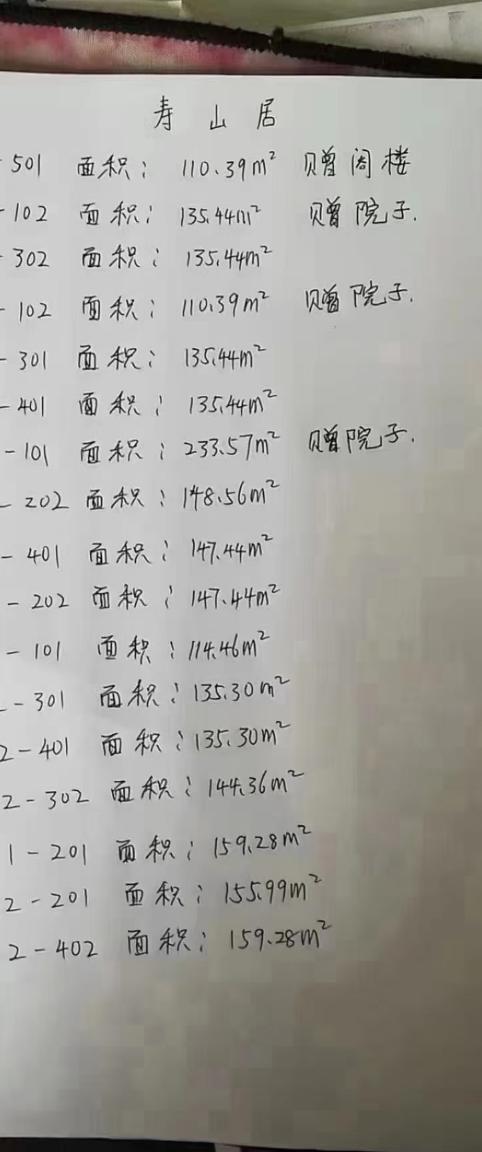 寿山居
-501 面积: 110.39m² 赠阁楼
-102 面积: 135.44m² 赠院子.
-302 面积: 135.44m²
-102 面积: 110.39m² 赠院子.
-301 面积: 135.44m²
-401 面积: 135.44m²
-101 面积: 233.57m² 赠院子.
-202 面积: 148.56m²
-401 面积: 147.44m²
-202 面积: 147.44m²
-101 面积: 114.46m²
-301 面积: 135.30m²
2-401 面积: 135.30m²
2-302 面积: 144.36m²
1-201 面积: 159.28m²
2-201 面积: 155.99m²
2-402 面积: 159.28m²